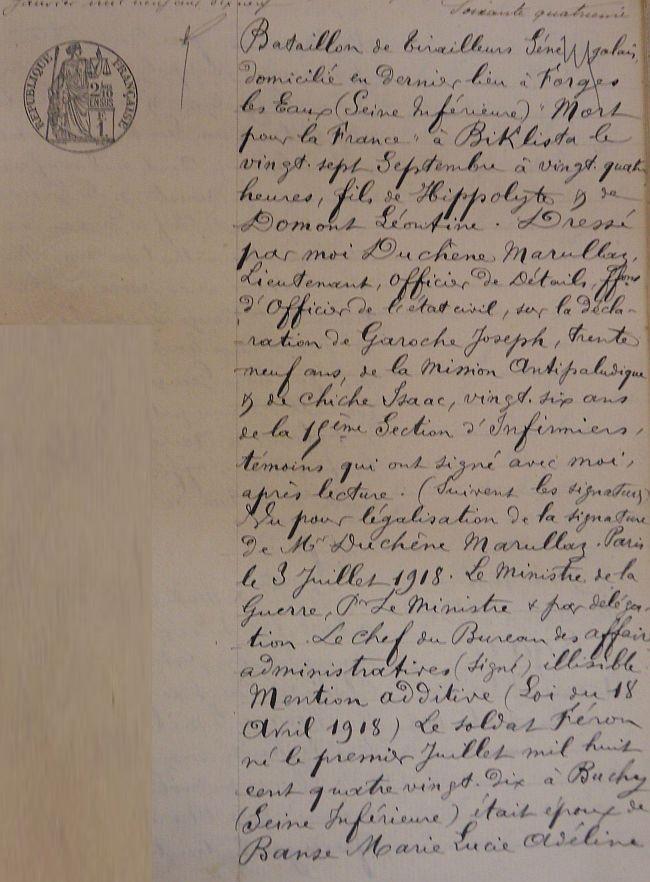 Janvier mil neuf cent dix neuf
Soixante quatrième
RÉPUBLIQUE FRANÇAISE
Bataillon de Tirailleurs Sénégalais,
domicilié en dernier lieu à Forges
les Eaux (Seine Inférieure) "Mort
pour la France" à Biklista le
vingt-sept Septembre à vingt-quatre
heures, fils de Hippolyte & de
Domont Léontine. Dressé
par moi Duchêne Marullaz,
Lieutenant, Officier de Détails, ffons
d'Officier de l'état civil, sur la décla-
ration de Garoche Joseph, trente
neuf ans, de la Mission Antipaludique
& de Chiche Isaac, vingt-six ans
de la 15ème Section d'Infirmiers,
témoins qui ont signé avec moi,
après lecture. (Suivent les signatures)
Vu pour légalisation de la signature
de Mr Duchêne Marullaz. Paris
le 3 Juillet 1918. Le Ministre de la
Guerre, Pr Le Ministre & par déléga-
tion. Le chef du Bureau des affair
administratives (signé) illisible.
Mention additive (Loi du 18
Avril 1918) Le soldat Féron
né le premier Juillet mil huit
cent quatre vingt-dix à Buchy
(Seine Inférieure) était époux de
Banse Marie Lucie Adéline